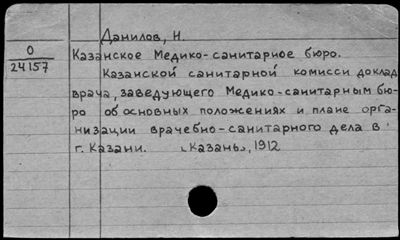 Данилов, Н.
О
24157
Казанское Медико-санитарное бюро.
Казанской санитарной комисси доклад
врача, заведующего Медико-санитарным бю-
ро об основных положениях и плане орга-
низации врачебно-санитарного дела в
г. Казани. „Казань", 1912